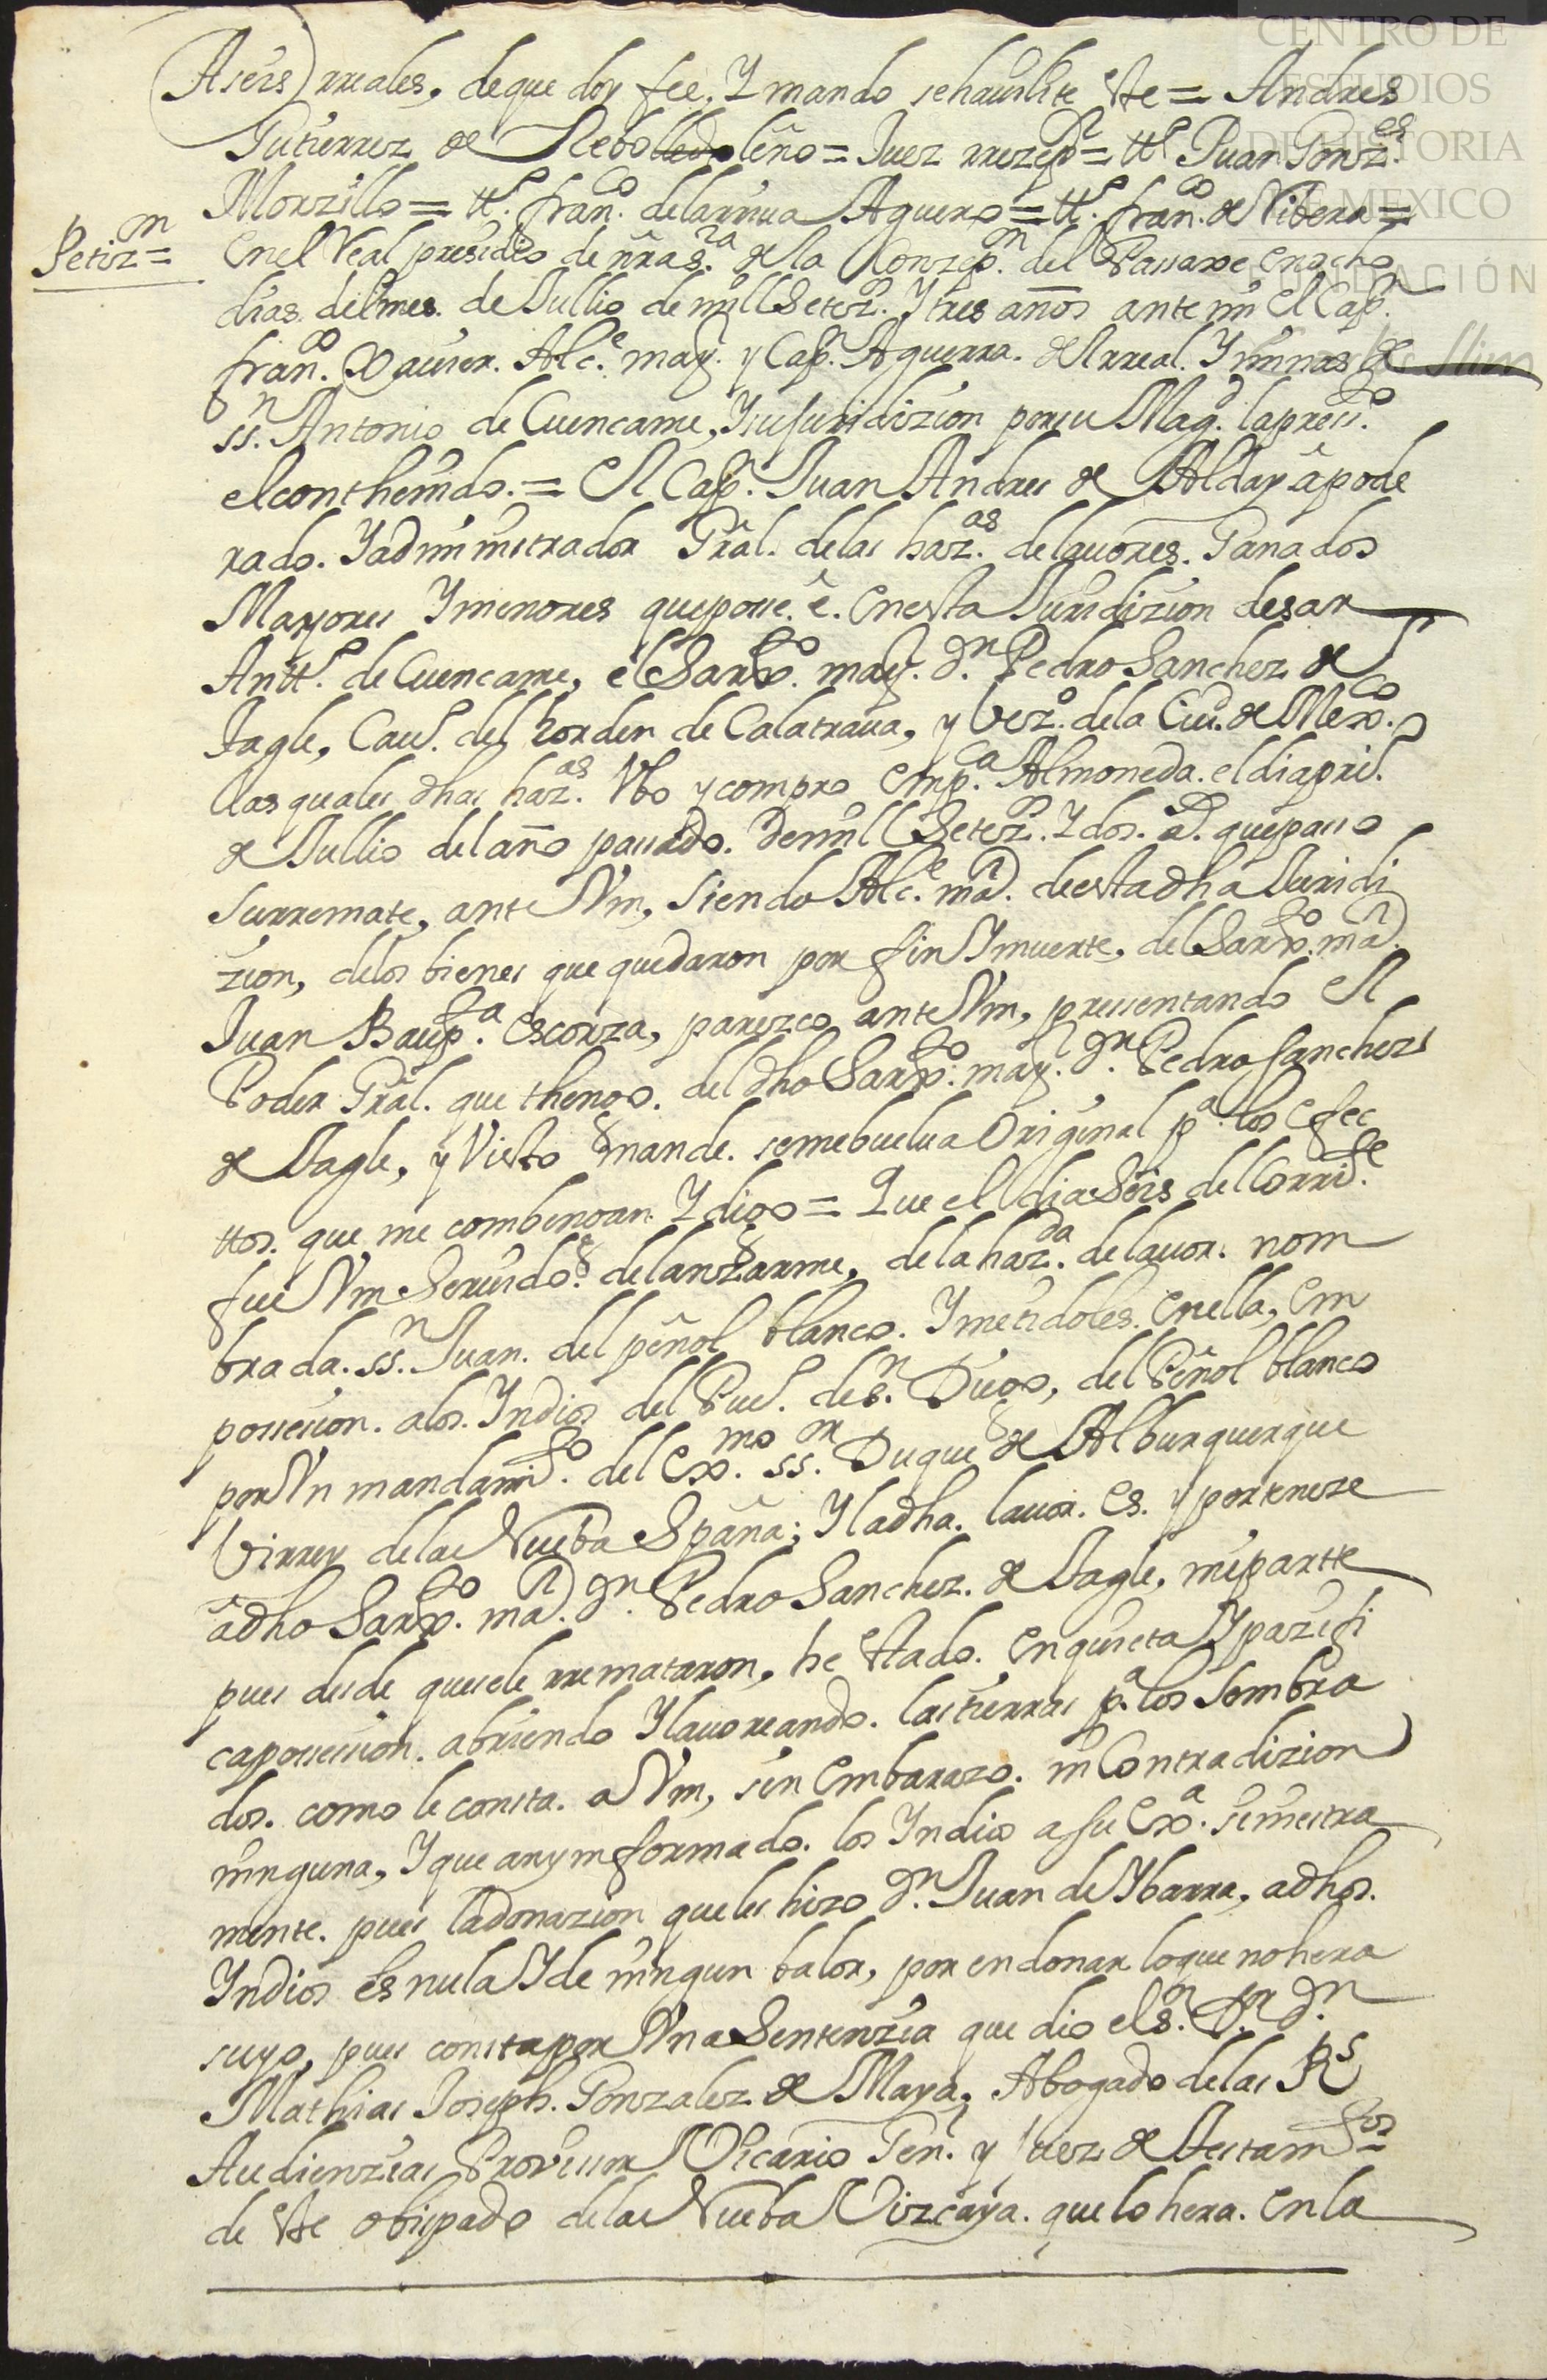 CENTRO DE
ESTUDIOS
DE HISTORIA
DE MEXICO
FUNDACIÓN
Slim
A seis) rreales, de que doy fee, Y mando se hauilite Ste = Andres
Gutierrez de Rebolledo leño = Juez rrezepr = tto Juan Gonz.es
Monzillo = tto. fran.co de la rriua Aguero = tto. fran.co de Ribera =
Petiz.n =
En el Real presidio de nra s.ra de la Conzep.n del Passaxe en ocho
dias del mes. de Jullio de mill Setez.os Y tres años ante mi el Cap.n
fran.co Xauier. Alc.e may.r y Cap.n Aguerra. del rreal. Y minas de
ss.n Antonio de Cuencame, Y su juridizion por su Mag.d la press.to
el conthenido. = El Cap.n Juan Andres de Alday apode
rado. Y administrador Gral. de las haz.as de lauores. Ganados
Mayores Y menores que posse. e. en esta Juridizion de san
Antto. de Cuencame, el Sarx.to may.r d.n Pedro Sanchez de
Tagle, Cauo. del horden de Calatraua, y vez.o de la Ciud. de Mex.co
las quales dhas haz.as Vbo y compro en p.ca Almoneda. el dia pri.o
de Jullio del año passado. de mill Setez.os Y dos. ad. que passo
su rremate, ante Vm, siendo Alc.e mar. de esta dha Juridi
zion, de los bienes que quedaron por fin Y muerte, del Sarx.to mar.
Juan Baup.ta Escorza, parezco ante Vm, pressentando el
Poder Gral. que thengo. del dho Sarx.to may.r d.n Pedro sanchez
de Tagle, y Visto mande. se me buelua Original p.a los efec
ttos. que me combengan Y digo = Que el dia Seis del Corri.te
fue Vm Seruido. de lanzarme, de la haz.da de lauor. nom
brada. ss.n Juan. del peñol blanco. Y metidoles. en ella, em
possession. a los. Yndios del Pueo. de s.n Diego, del Peñol blanco
por Vn mandami.to del Ex.mo ss.or Duque de Alburquerque
Virrey de la Nueba España; Y la dha. lauor. es. y perteneze
a dho Sarx.to mar. d.n Pedro Sanchez. de Tagle, mi parte
pues desde que se le rremataron, he Stado. en quieta Y pazifi
ca possession. abriendo Y lauoreando. las tierras p.a los sembra
dos. como le consta. a Vm, sin embarazo. ni Contradizion
ninguna, Y que an ynformado. los Yndios a su Ex.a siniestra
mente. pues la donazion que les hizo d.n Juan de Ybarra, a dhos.
Yndios es nula Y de ningun balor, por en donar lo que no hera
suyo, pues consta por Vna Sentenzia que dio el s.r D.or d.n
Mathias Joseph. Gonzalez de Maya, Abogado de las R.s
Audienzias Provisor Vicario Gen.l y Juez de Testam.tos =
de Ste obispado de la Nueba Vizcaya. que lo hera. en la